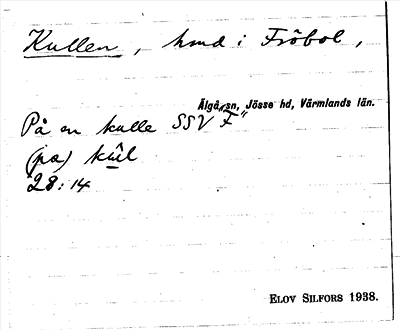 Kullen, hmd i Fröbol,
Älgå sn, Jösse hd, Värmlands län.
På en kulle SSV "F"
(pɑ) kul
28:14
ELOV SILFORS 1938.